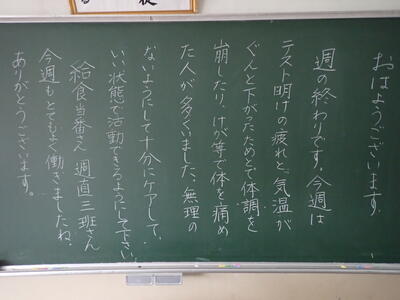 おはようございます。
週の終わりです。今週は
テスト明けの疲れと、気温が
ぐんと下がったためとで体調を
崩したり、けが等で体を痛め
た人が多くいました。無理の
ないようにして十分にケアして、
いい状態で活動できるようにして下さい。
給食当番さん 週直三班さん
今週もとてもよく働きましたね。
ありがとうございます。